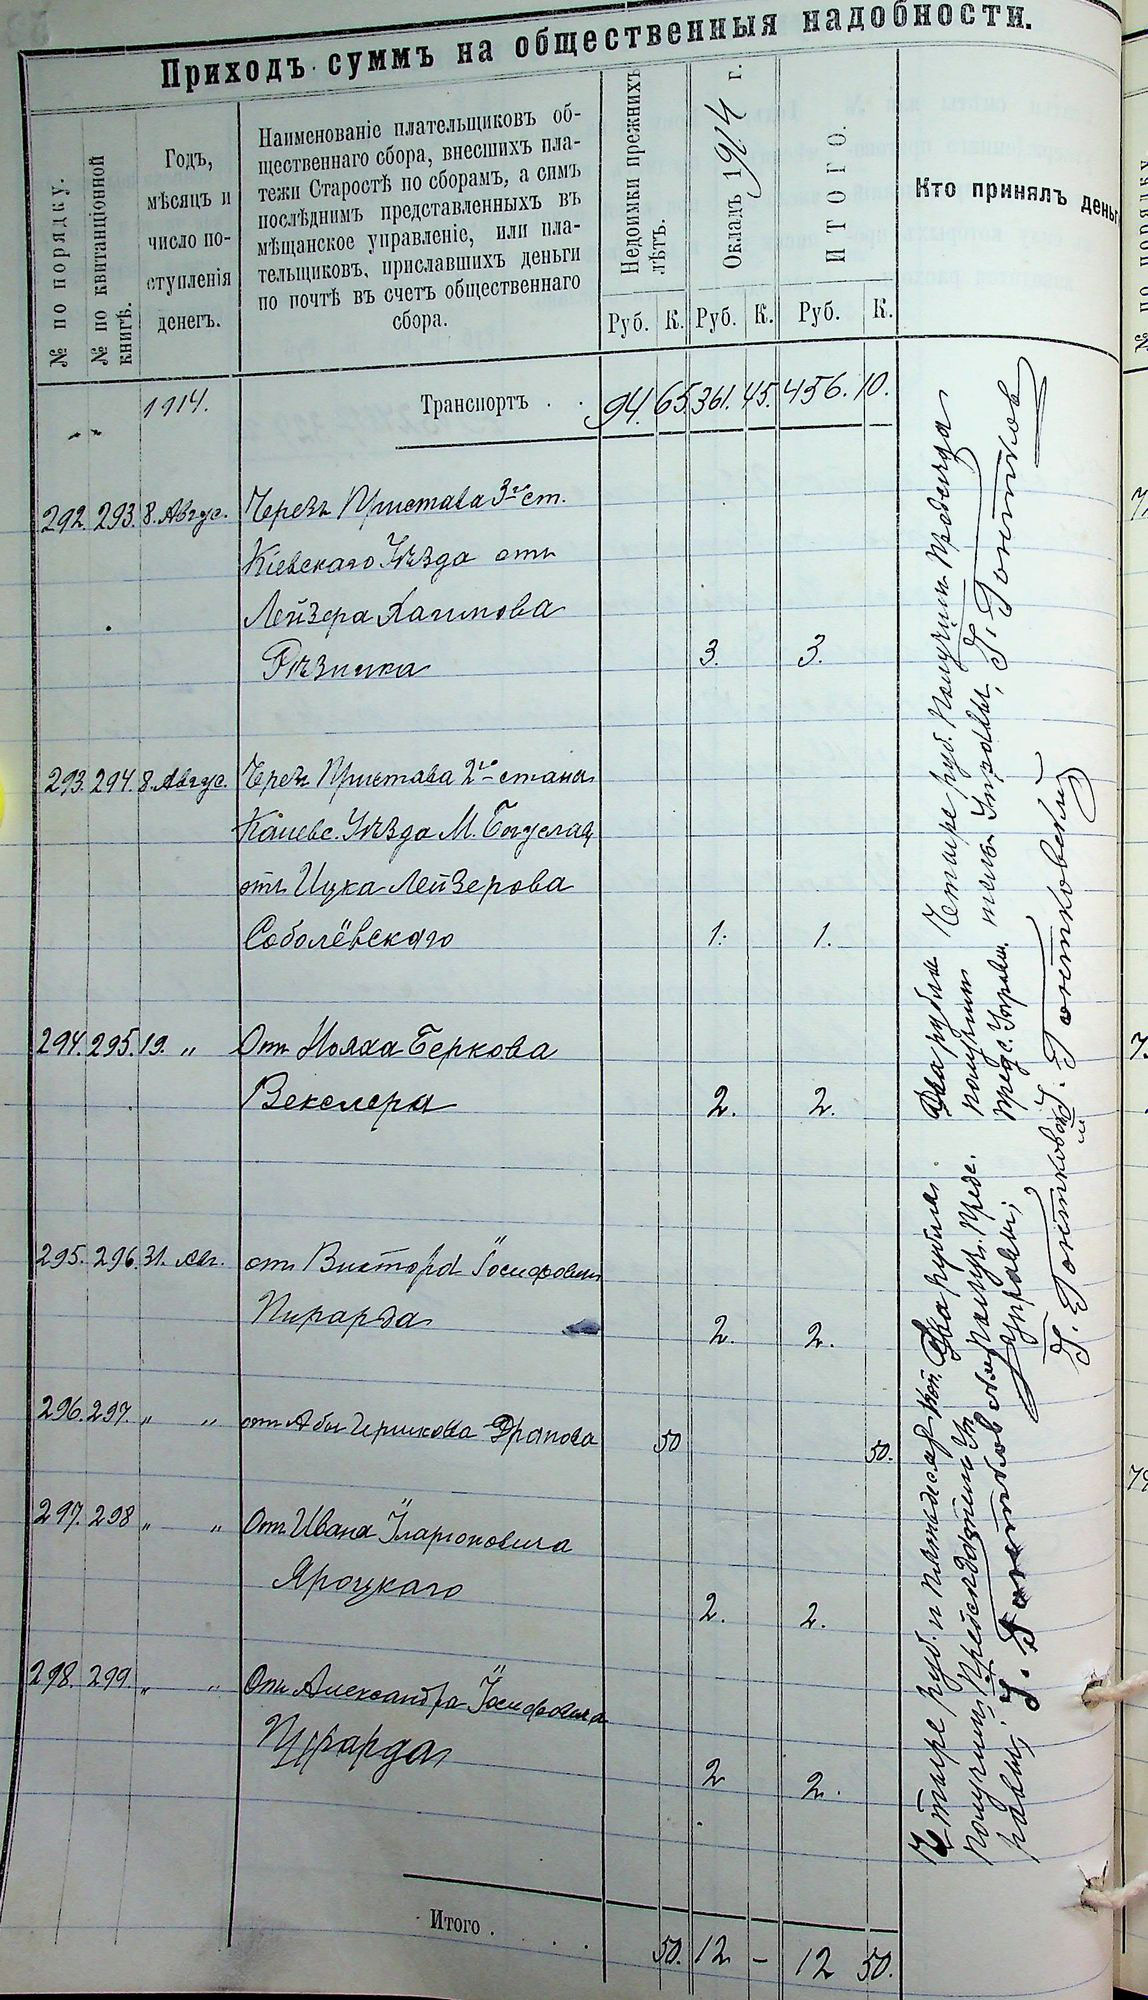 Приходъ суммъ на общественныя надобности.
№ по порядку.
№ по квитанціонной
книгѣ.
Годъ,
мѣсяцъ и
число по-
ступленія
денегъ.
Наименованіе плательщиковъ об-
щественнаго сбора, внесшихъ пла-
тежи Старостѣ по сборамъ, а симъ
послѣднимъ представленныхъ въ
мѣщанское управленіе, или пла-
тельщиковъ, приславшихъ деньги
по почтѣ въ счетъ общественнаго
сбора.
Недоимки прежнихъ
лѣтъ.
Окладъ 1914 г.
ИТОГО.
Кто принялъ деньг
Руб. К. Руб. К. Руб. К.
1914. Транспортъ . . 94. 65 361. 45. 456. 10.
292. 293. 8. Авгус. Черезъ Пристава 3го ст.
Кіевскаго Уѣзда отъ
Лейзера Хаимова
Рѣзника 3. 3.
293. 294. 8. Авгус. Черезъ Пристава 2го стана
Каневс. Уѣзда М. Богуслав
отъ Ицка Лейзерова
Соболёвскаго 1. 1.
Четыре руб. Получилъ Председа
тель Управы, Г. Гонтков
294. 295. 19. " Отъ Нояха Беркова
Векслера 2. 2.
Два рубля
получилъ
Пред с. Управы.
Г. Гонтковский
295. 296. 31. Авг. отъ Виктора Іосифовича
Пирарда 2. 2.
Два рубля.
получ. Предс.
Управы;
Г. Гонтковский
296. 297. " " отъ Абы Іершкова Драпова 50 50.
297. 298 " " Отъ Ивана Иларіоновича
Яроцкаго 2. 2.
298. 299. " " Отъ Александра Іосифовича
Пирарда 2 2.
Четыре руб. и пятьдесят коп.
получилъ, Председатель Уп
равы; Г. Гонтков
Итого . . . . 50. 12. – 12 50.